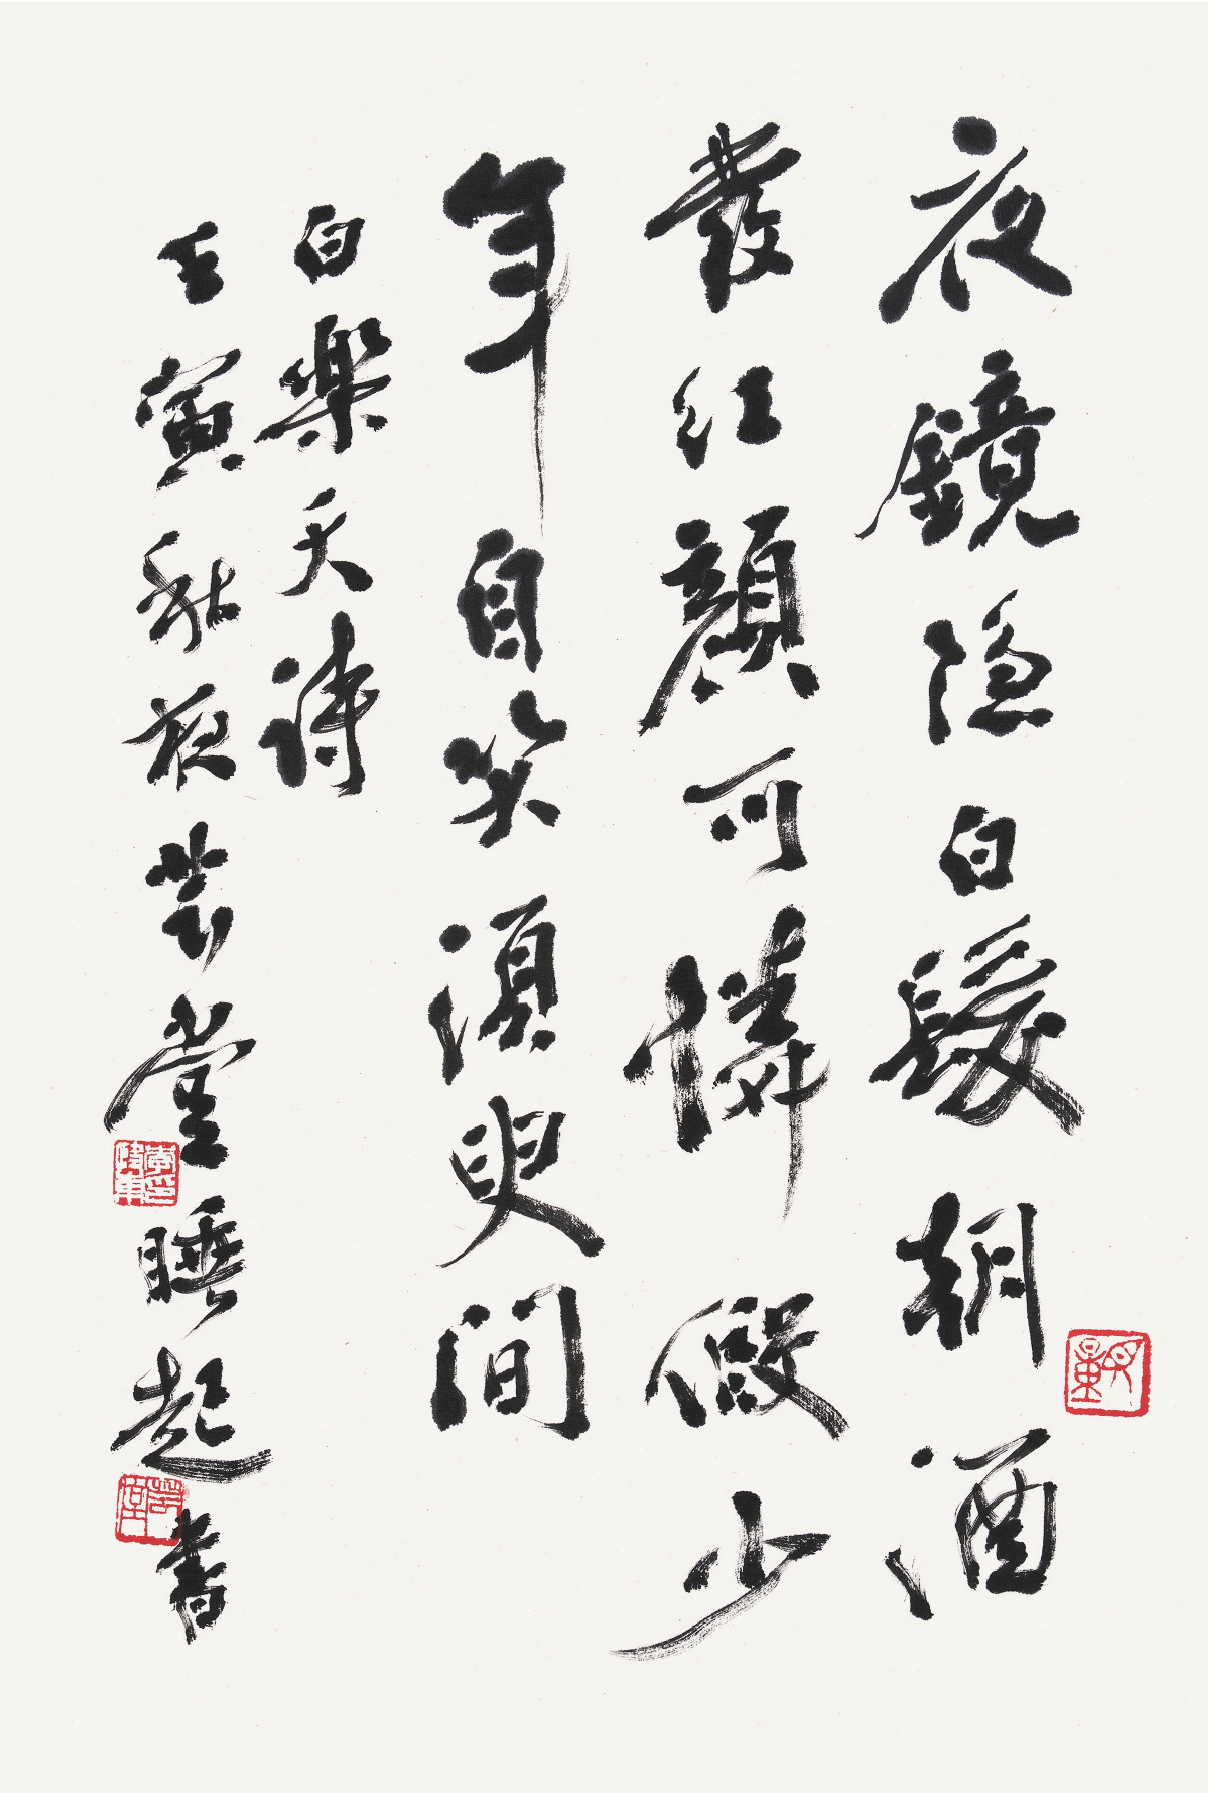 夜鏡隐白髮朝酒
發红顏可憐假少
年自笑須臾間
白樂天詩
壬寅秋夜芸堂睡起書